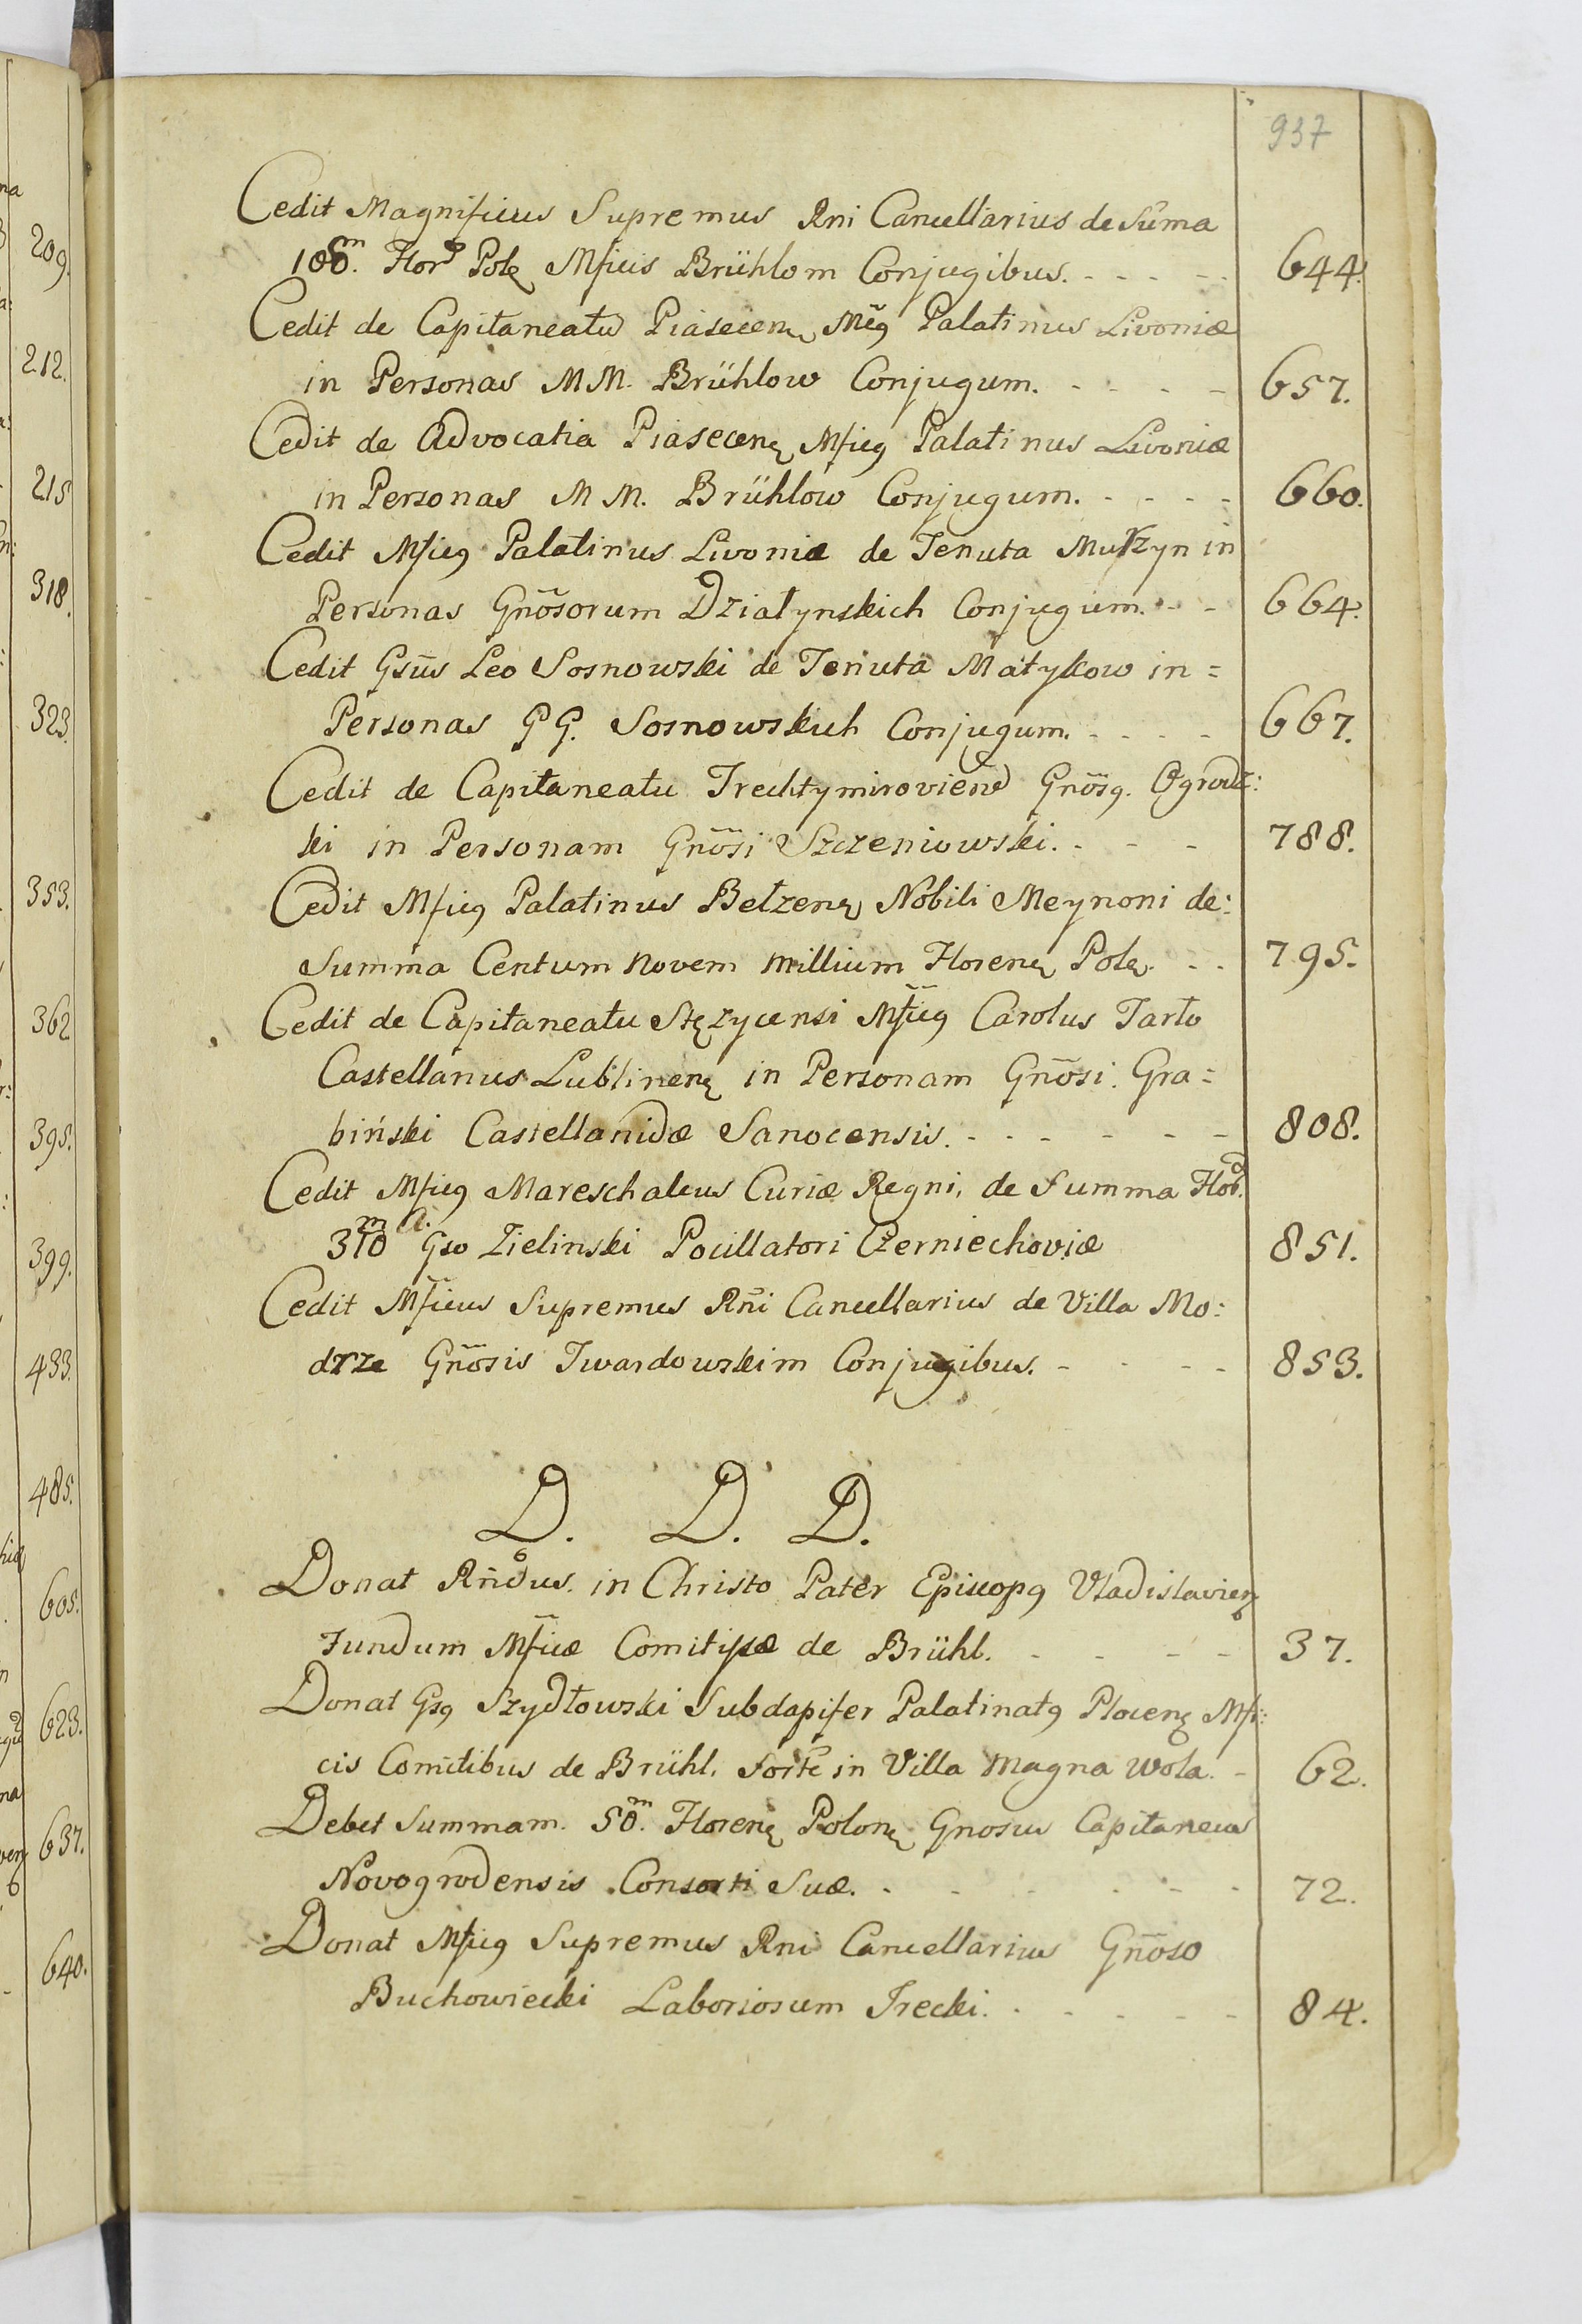 937
Cedit Magnificus Supremus Rni Cancellarius de Sum̃a
100.m Flor. Pol. Mficis Brühlom Conjugibus. - - - - - 644.
Cedit de Capitaneatu Piasecen. Mcg Palatinus Livoniæ
in Personas MM. Brühlow Conjugum. - - - - 657.
Cedit de Advocatia Piasecen. Mficg Palatinus Livoniæ
in Personas M M. Brühlow Conjugum. - - - - 660.
Cedit Mficg Palatinus Livoniæ de Tenuta Murzyn in
Personas Gnõsorum Działynskich Conjugum. - - 664.
Cedit Gsũs Leo Sosnowski de Tenuta Matykow in =
Personas GG. Sosnowskich Conjugum. - - - - 667.
Cedit de Capitaneatu Trechtymirovien. Gnõsg. Ogrodz:
ki in Personam Gnõsi Szczeniowski. - - - 788.
Cedit Mficg Palatinus Bełzen. Nobili Meynoni de:
Summa Centum Novem Millium Floren. Pol. - - 795.
Cedit de Capitaneatu Stęzycensi Mficg Carolus Tarło
Castellanus Lublinen. in Personam Gnõsi Gra=
biński Castellanidæ Sanocensis. - - - - - - 808.
Cedit Mficg Mareschalcus Curiæ Regni, de Summa Flor.
310m Gso Zielinski Pocillatori Czerniechoviæ 851.
Cedit Mficus Supremus Rñi Cancellarius de Villa Mo:
drze Gñosis Twardowskim Conjugibus. - - - - 853.
D. D. D.
Donat Rñdus. in Christo Pater Episcopg Vladislavien.
Fundum Mficæ Comitissæ de Brühl. - - - - 37.
Donat Gsg Szydłowski Subdapifer Palatinatg Plocen. Mfi:
cis Comitibus de Brühl. Forte in Villa Magna Wola. - 62.
Debet Summam. 50.m Floren. Polon. Gnosus Capitaneus
Novogrodensis Consorti Suæ. - - - - - - 72.
Donat Mficg Supremus Rni Cancellarius Gñoso
Buchowiecki Laboriosum Trecki. - - - - - 84.
209.
212.
215
318.
323.
353.
362
395.
399.
433.
485.
605.
623.
637.
640.